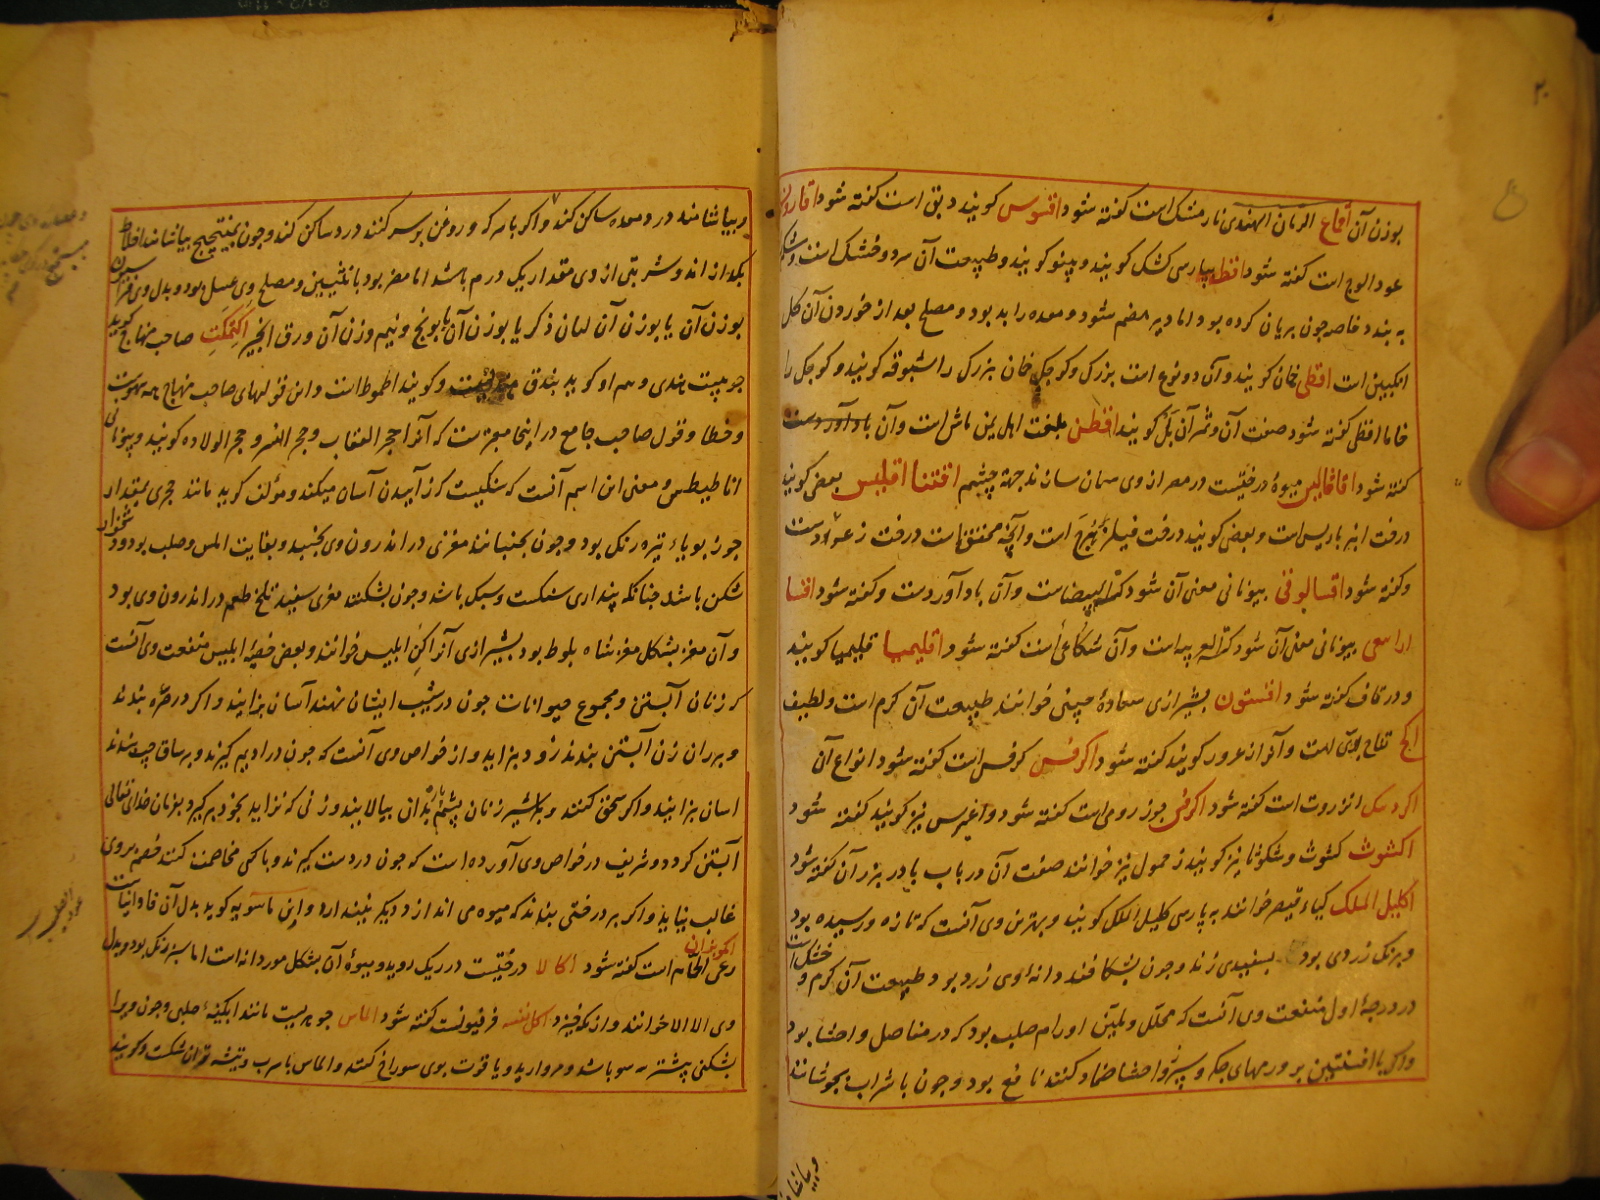 بوزن آن اقماع الرمان الهندی نارمشک است گفته شود اقسوس کویند دبق است گفته شود اقارون
عود الوج است گفته شود اقط بپارسی کشک کویند و پینو کویند و طبیعت آن سرد و خشک است و شکم
به بندد خاصه چون بریان کرده بود اما دیر هضم شود و معده را بد بود و مصلح بعد از خوردن آن کل
انکبین است اقطی خمان کویند و آن دو نوع است بزرک و کوچک خمان بزرک را شبوقه کویند و کوچک را
خاما اقطی گفته شود صفت آن و ثمر آن بل کویند اقطن بلغت اهل یمن ماش است و آن باد آوردست
گفته شود اقاقالیس میوهٔ درختیست در مصر از وی سازند جهة چشم اقتنا اقلیس بعضی کویند
درخت انبرباریس است و بعضی کویند درخت فیلزهرج است و آنچه محققست درخت زعرورست
و گفته شود اقسالوقی بیونانی معنی آن شود البیضاست و آن باد آوردست و گفته شود اقسا
بیونانی معنی آن شود العربیه است و آن شکاعی است گفته شود اقلیمیا قلیمیا کویند
و در قاف گفته شود اقستون بشیرازی سعادهٔ چینی خوانند طبیعت آن کرم است و لطیف
اکج تفاح است و آنرا زعرور کویند گفته شود اکرفس کرفس است گفته شود انواع آن
انزروت است گفته شود اکرفی جوز رومی است گفته شود و اغیرس نیز کویند گفته شود
اکشوث کشوث و شکوثا نیز کویند و حمول نیز خوانند صفت آن در باب با در بزر آن گفته شود
اکلیل الملک کیاه قیصر خوانند به پارسی کلیل الملک کویند و بهترین وی آنست که تازه و رسیده بود
و برنک زردی بود بسفیدی زند و چون بشکافند دانهٔ وی زرد بود طبیعت آن کرم و خشک است
در درجهٔ اول منفعت وی آنست که محلل و ملین اورام صلب بود که در مفاصل و احشا بود
واکر با افسنتین بر ورمهای جکر و سپرز و احشا ضماد کنند نافع بود و چون با شراب بجوشانند
و بیاشامند
و بیاشامند درد معده ساکن کند و اکر با سرکه و روغن بر سر کنند درد ساکن کند و چون بمیبختج بیاشامند اخلاط
بکدازاند و شربتی از وی مقدار یک درم باشد اما مضر بود بانثیین و مصلح وی عسل بود و بدل وی
بوزن آن یا بوزن آن لسان ذکر یا بوزن آن بابونج و نیم وزن آن ورق انجیر اکتمکت صاحب منهاج کوید
چوبیست هندی و هم او کوید بندق هندیست و کویند اطموط است و این قولهای صاحب منهاج همه سهوست
و خطا و قول صاحب جامع در اینجا معتبرست که آنرا حجر العقاب و حجر النسر و حجر الولاده کویند و بیونانی
اناطیطس و معنی این اسم آنست که سنکیست که زآییدن آسان میکند و مؤلف کوید مانند حجری بمقدار
جوز بویاء تیره رنک بود و چون بجنبانند مغزی در اندرون وی بجنبد و بغایت املس و صلب بود و دشخوار
شکن باشد چنانکه پنداری سنکست و سبک باشد و چون بشکنند مغزی سفید تلخ طعم در اندرون وی بود
و آن مغز بشکل مغز شاه بلوط بود بشیرازی آنرا کن ابلیس خوانند و بعضی خصیهٔ ابلیس منفعت وی آنست
که زنان آبستن و مجموع حیوانات چون در شیب ایشان نهند آسان بزایند و اکر در خرقه بندند
و بر ران زن آبستن بندند زود بزاید و از خواص وی آنست که چون در ادیم کیرند و بر ساق چپ بندند
آسان بزایند و اکر سحق کنند و بشیر زنان پشم بدان بیالایند و زنی که نزاید بخود برکیرد بفرمان خدای تعالی
آبستن کردد و شریف در خواص وی آورده است که چون در دست کیرند و با کسی مخاصمت کنند خصم بروی
غالب نیاید و اکر بر درختی بندند که میوه می اندازد دیکر نیندازد و ابن ماسویه کوید بدل آن فاوانیاست
اکوشران
رعی الحمام است گفته شود اکالا درختیست در ریک روید و میوهٔ آن بشکل مورد دانه است اما سبز رنک بود و بدل
وی الا خوانند و از مکه خیزد اکل نفسه فرفیونست گفته شود الماس جوهریست مانند ابکینهٔ صلبی و چون ویرا
بشکنی پیشتر سه سو باشد و مروارید و یاقوت بوی سوراخ کنند و الماس باسرب و تیشه توان شکست و کویند